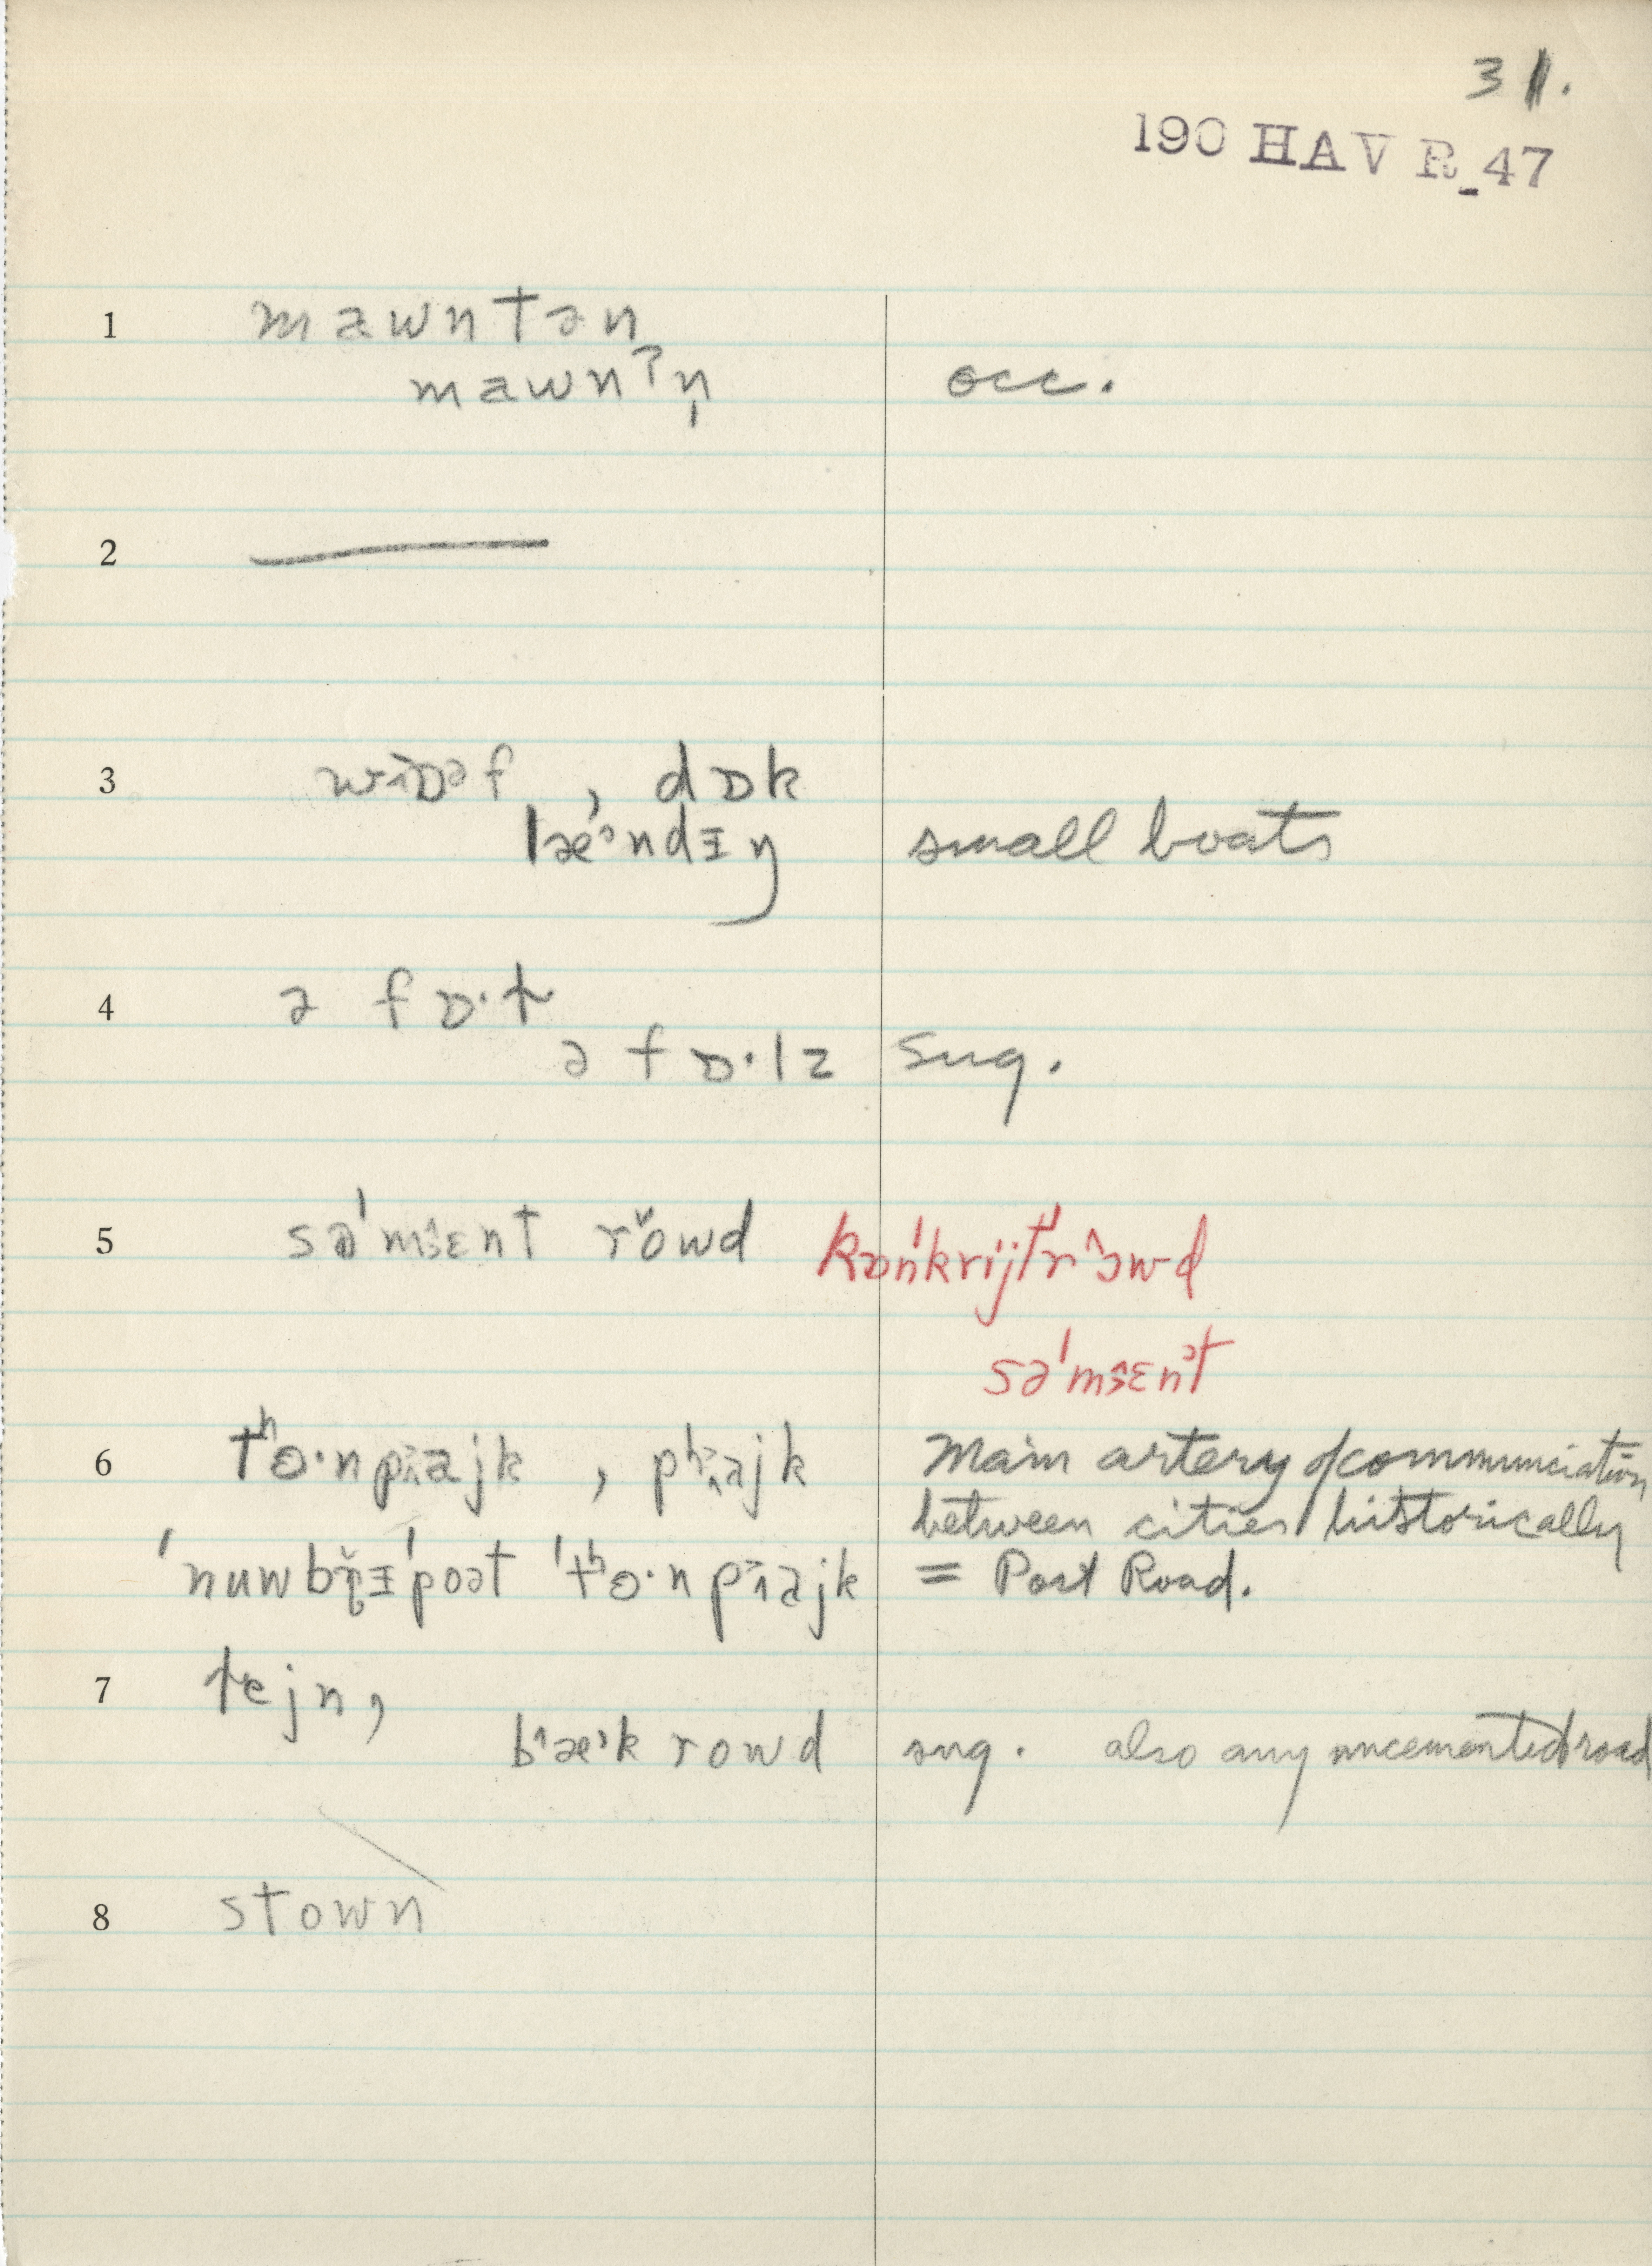 31.
190 HAV R_47
1 mawntən
mawnʔn̩ occ.
2
3 , dɒk
lǽᵊndɪŋ small boats
4 ə fɒ·ɫ
ə fɒ·lz sug.
5 sə'mɛnt rŏwd kɒń'krijt'r^owd
sə'mɛnt
6 tʰɵ·npajk , pʰajk Main artery of communciation
between cities historically
'nuwbrɪ'poət 'tʰɵ·npajk = Post Road.
7 ɫejn,
b^æᵊk rowd sug. also any uncemented road
8 stown